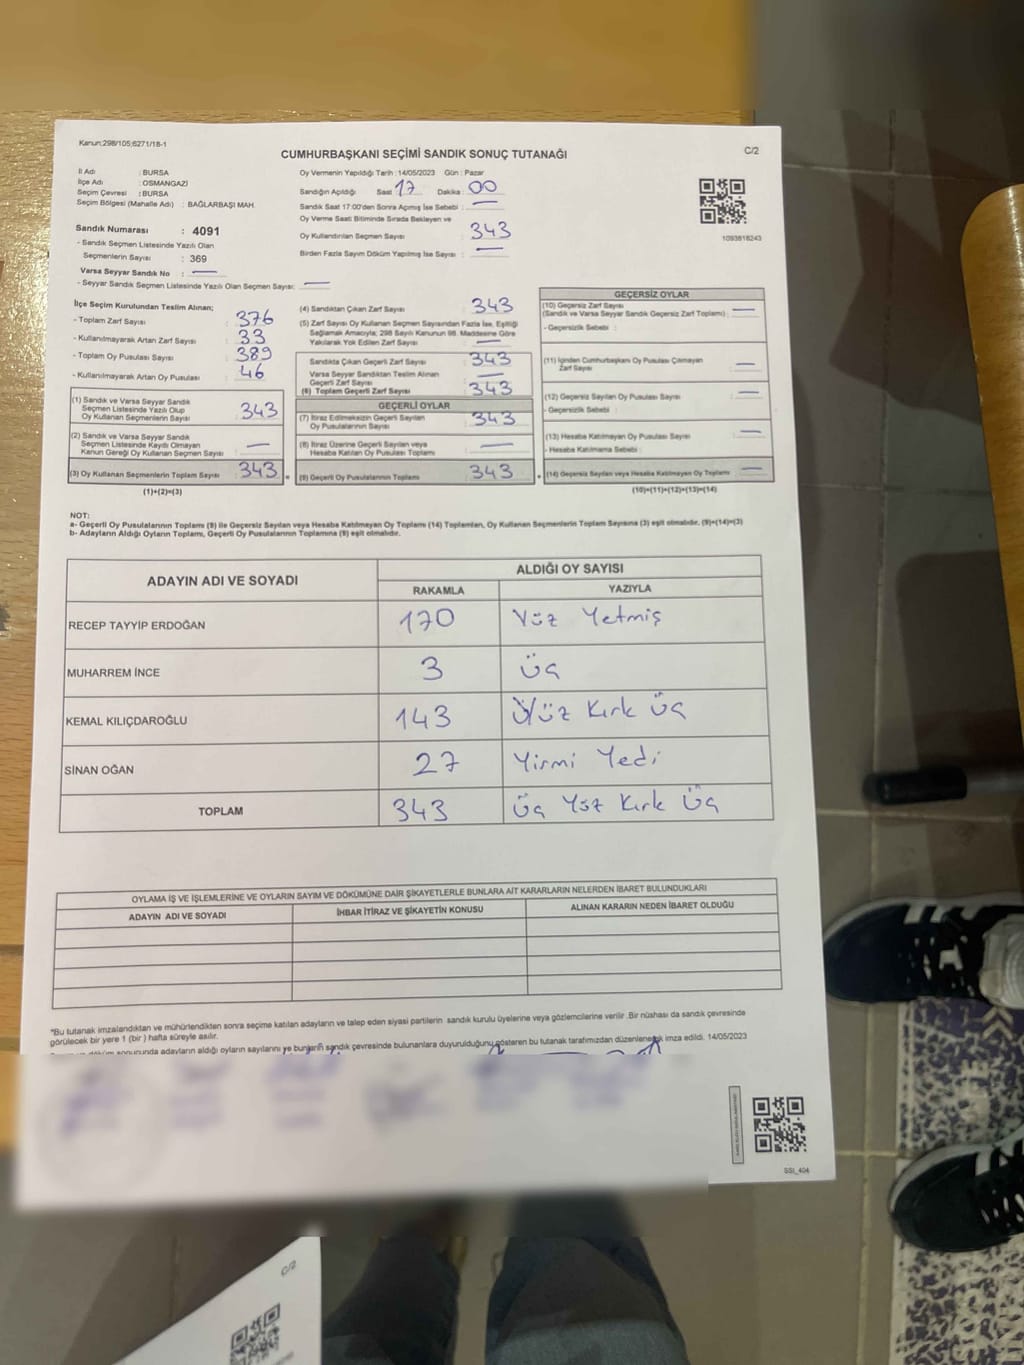 Kanun;298/105;6271/18-1
C/2
CUMHURBAŞKANI SEÇİMİ SANDIK SONUÇ TUTANAĞI
İl Adı : BURSA
İlçe Adı : OSMANGAZİ
Seçim Çevresi : BURSA
Seçim Bölgesi (Mahalle Adı) : BAĞLARBAŞI MAH.
Sandık Numarası : 4091
- Sandık Seçmen Listesinde Yazılı Olan
Seçmenlerin Sayısı : 369
Varsa Seyyar Sandık No : —
- Seyyar Sandık Seçmen Listesinde Yazılı Olan Seçmen Sayısı: —
Oy Vermenin Yapıldığı Tarih : 14/05/2023 Gün : Pazar
Sandığın Açıldığı Saat 17 Dakika : 00
Sandık Saat 17:00'den Sonra Açımış İse Sebebi : —
Oy Verme Saati Bitiminde Sırada Bekleyen ve
Oy Kullandırılan Seçmen Sayısı : 343
Birden Fazla Sayım Döküm Yapılmış İse Sayısı : —
1093818243
İlçe Seçim Kurulundan Teslim Alınan;
- Toplam Zarf Sayısı : 376
- Kullanılmayarak Artan Zarf Sayısı : 33
- Toplam Oy Pusulası Sayısı : 389
- Kullanılmayarak Artan Oy Pusulası : 46
(1) Sandık ve Varsa Seyyar Sandık
Seçmen Listesinde Yazılı Olup
Oy Kullanan Seçmenlerin Sayısı : 343
(2) Sandık ve Varsa Seyyar Sandık
Seçmen Listesinde Kaydı Olmayan
Kanun Gereği Oy Kullanan Seçmen Sayısı : —
(3) Oy Kullanan Seçmenlerin Toplam Sayısı : 343
(1)+(2)=(3)
(4) Sandıktan Çıkan Zarf Sayısı : 343
(5) Zarf Sayısı Oy Kullanan Seçmen Sayısından Fazla İse, Eşitliği
Sağlamak Amacıyla; 298 Sayılı Kanunun 98. Maddesine Göre
Yakılarak Yok Edilen Zarf Sayısı : —
Sandıkta Çıkan Geçerli Zarf Sayısı : 343
Varsa Seyyar Sandıktan Teslim Alınan
Geçerli Zarf Sayısı : —
(6) Toplam Geçerli Zarf Sayısı : 343
GEÇERLİ OYLAR
(7) İtiraz Edilmeksizin Geçerli Sayılan
Oy Pusulalarının Sayısı : 343
(8) İtiraz Üzerine Geçerli Sayılan veya
Hesaba Katılan Oy Pusulası Toplamı : —
(9) Geçerli Oy Pusulalarının Toplamı : 343
GEÇERSİZ OYLAR
(10) Geçersiz Zarf Sayısı
(Sandık ve Varsa Seyyar Sandık Geçersiz Zarf Toplamı) : —
- Geçersizlik Sebebi :
(11) İçinden Cumhurbaşkanı Oy Pusulası Çıkmayan
Zarf Sayısı : —
(12) Geçersiz Sayılan Oy Pusulası Sayısı : —
- Geçersizlik Sebebi :
(13) Hesaba Katılmayan Oy Pusulası Sayısı : —
- Hesaba Katılmama Sebebi :
(14) Geçersiz Sayılan veya Hesaba Katılmayan Oy Toplamı : —
(10)+(11)+(12)+(13)=(14)
NOT:
a- Geçerli Oy Pusulalarının Toplamı (9) ile Geçersiz Sayılan veya Hesaba Katılmayan Oy Toplamı (14) Toplamları, Oy Kullanan Seçmenlerin Toplam Sayısına (3) eşit olmalıdır. (9)+(14)=(3)
b- Adayların Aldığı Oyların Toplamı, Geçerli Oy Pusulalarının Toplamına (9) eşit olmalıdır.
ADAYIN ADI VE SOYADI ALDIĞI OY SAYISI
RAKAMLA YAZIYLA
RECEP TAYYİP ERDOĞAN 170 Yüz Yetmiş
MUHARREM İNCE 3 Üç
KEMAL KILIÇDAROĞLU 143 Yüz Kırk Üç
SİNAN OĞAN 27 Yirmi Yedi
TOPLAM 343 Üç Yüz Kırk Üç
OYLAMA İŞ VE İŞLEMLERİNE VE OYLARIN SAYIM VE DÖKÜMÜNE DAİR ŞİKAYETLERLE BUNLARA AİT KARARLARIN NELERDEN İBARET BULUNDUKLARI
ADAYIN ADI VE SOYADI İHBAR İTİRAZ VE ŞİKAYETİN KONUSU ALINAN KARARIN NEDEN İBARET OLDUĞU
*Bu tutanak imzalandıktan ve mühürlendikten sonra seçime katılan adayların ve talep eden siyasi partilerin sandık kurulu üyelerine veya gözlemcilerine verilir .Bir nüshası da sandık çevresinde
görülecek bir yere 1 (bir ) hafta süreyle asılır.
döküm sonucunda adayların aldığı oyların sayılarını ve bunların sandık çevresinde bulunanlara duyurulduğunu gösteren bu tutanak tarafımızdan düzenlenerek imza edildi. 14/05/2023
SSI_404
C/2